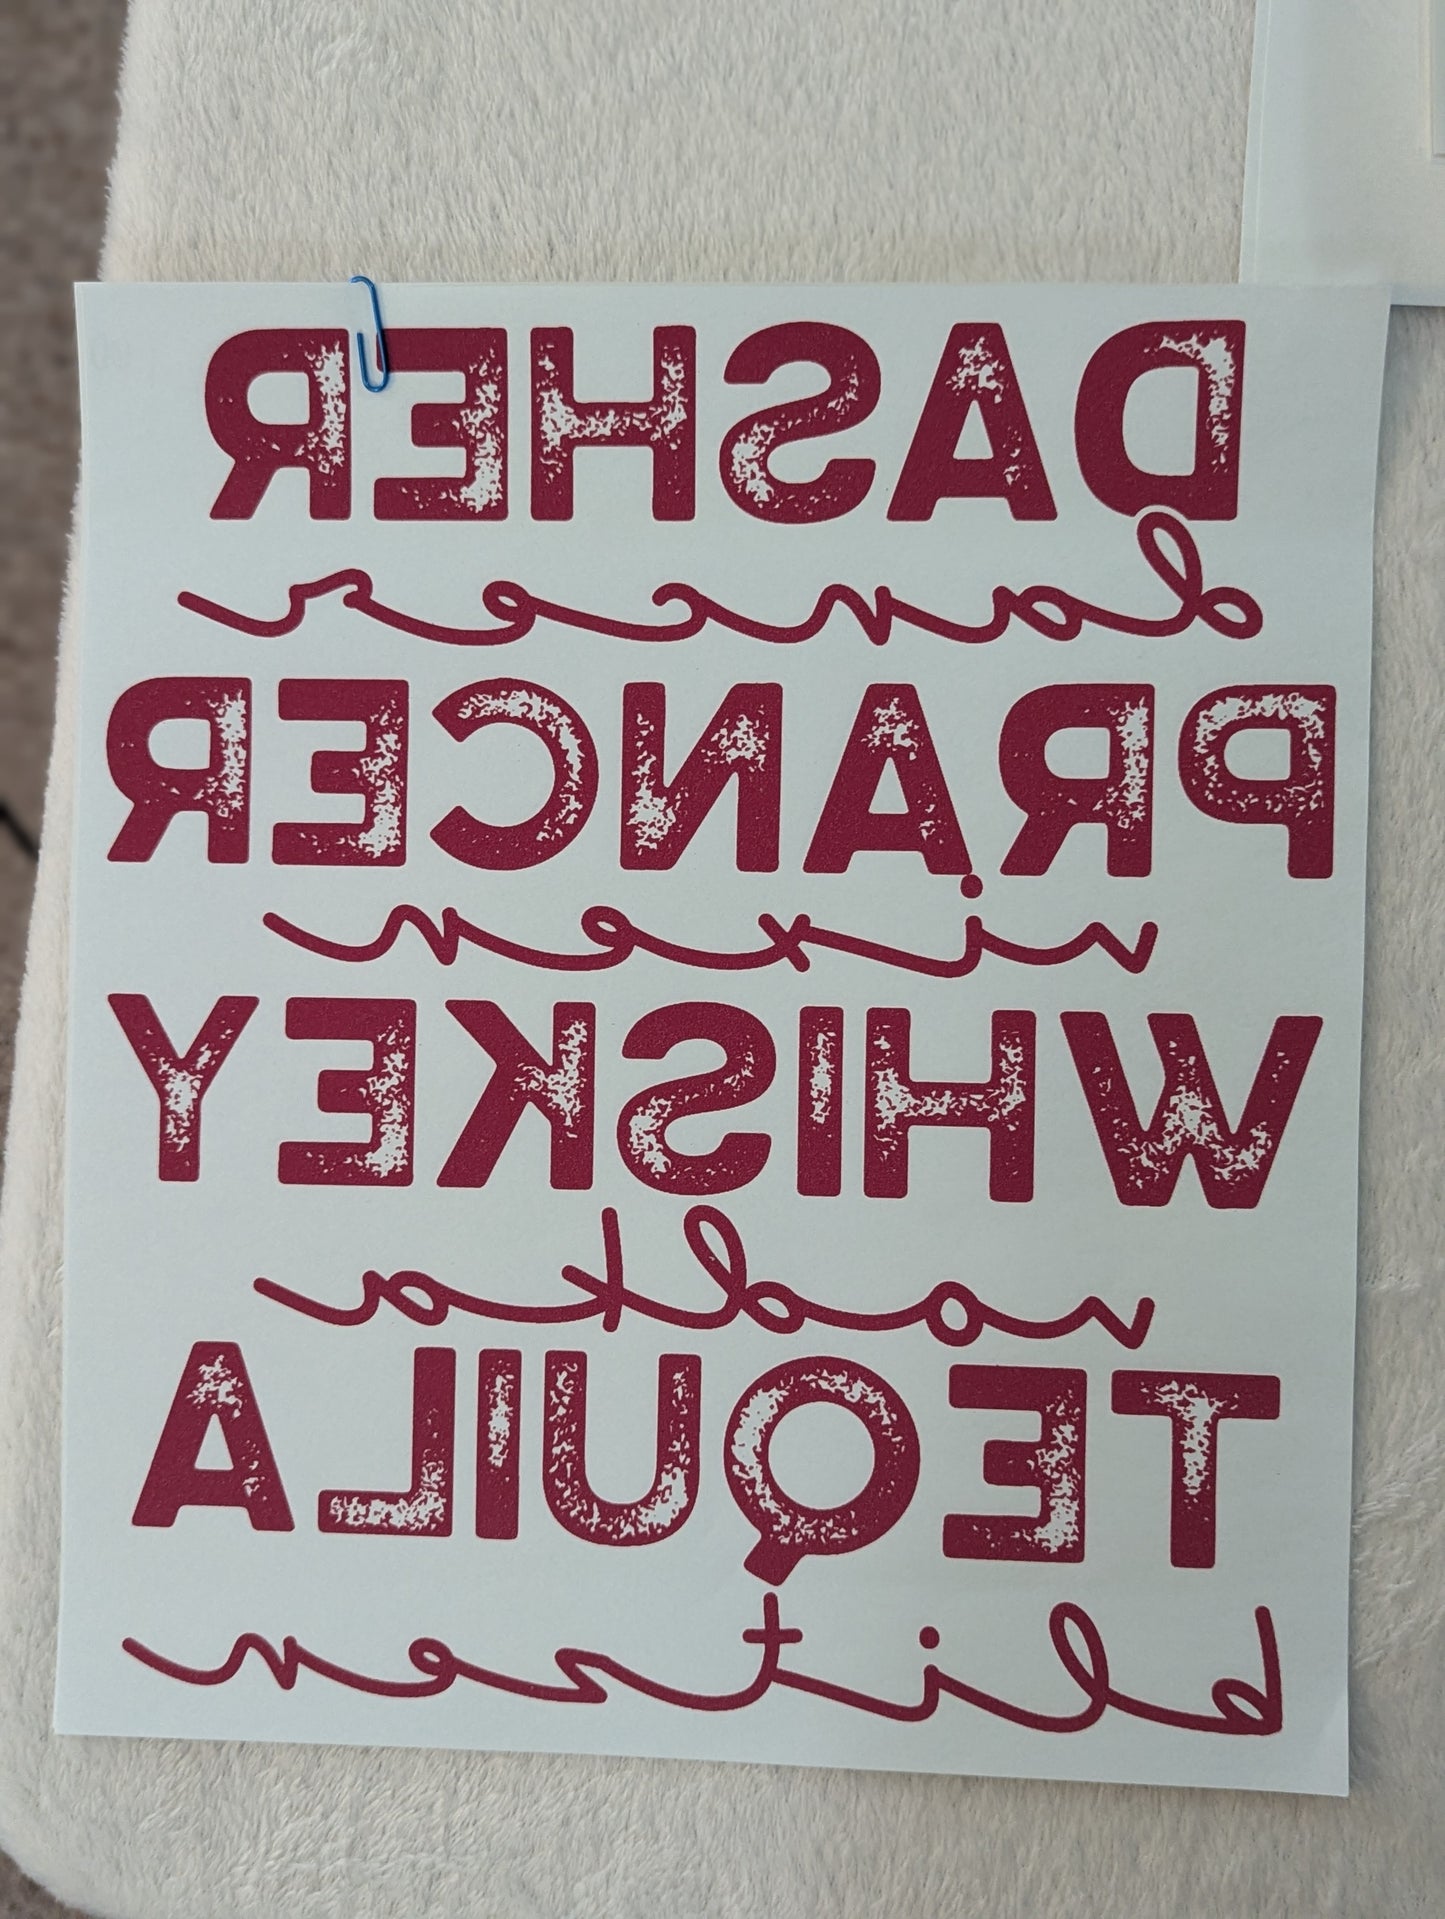 DASHER
dancer
PRANCER
vixen
WHISKEY
vodka
TEQUILA
blitzen